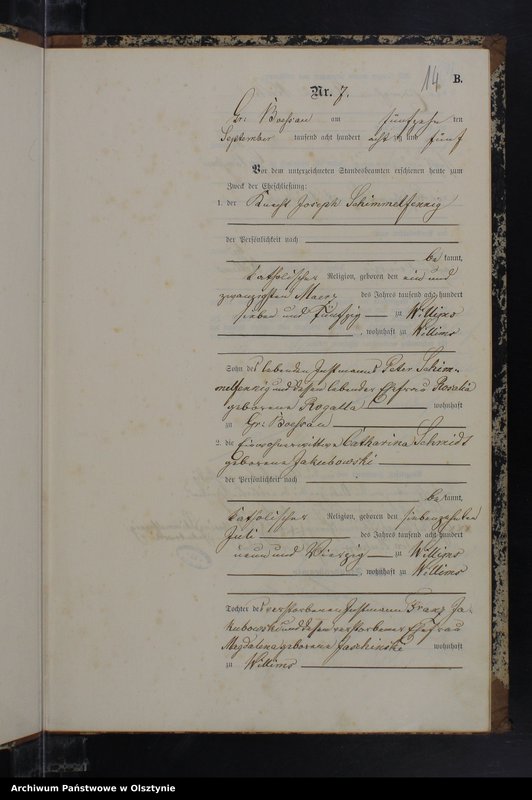 14 B.
Nr. 7.
Gr: Boessau am fünfzehn ten
September tausend acht hundert acht zig und fünf
Vor dem unterzeichneten Standesbeamten erschienen heute zum
Zweck der Eheschließung:
1. der Knecht Joseph Schimmelfennig
der Persönlichkeit nach
be kannt,
katholischer Religion, geboren den ein und
zwanzigsten Maerz des Jahres tausend acht hundert
sieben und Fünfzig zu Willims
, wohnhaft zu Willims
Sohn des lebenden Instmanns Peter Schim-
melfennig und dessen lebender Ehefrau Rosalia
geborene Rogalla wohnhaft
zu Gr: Boessau
2. die Einwohnerwittwe Catharina Schmidt
geborene Jakubowski
der Persönlichkeit nach
be kannt,
katholischer Religion, geboren den siebenzehnten
Juli des Jahres tausend acht hundert
neun und Vierzig zu Willims
, wohnhaft zu Willims
Tochter des verstorbenen Instmann Franz Ja-
kubowski und dessen verstorbener Ehefrau
Magdalena geborene Jaschinski wohnhaft
zu Willims
Archiwum Państwowe w Olsztynie